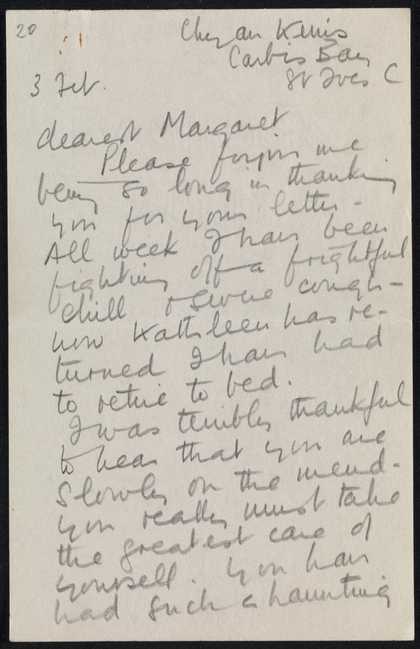 20
Chy an Kerris
Carbis Bay
St Ives C
3 Feb.
dearest Margaret
Please forgive me
being so long in thanking
you for your letter -
All week I have been
fighting off a frightful
chill & severe cough -
now Kathleen has re-
turned I have had
to retire to bed.
I was terribly thankful
to hear that you are
slowly on the mend -
you really must take
the greatest care of
yourself. You have
had such a haunting